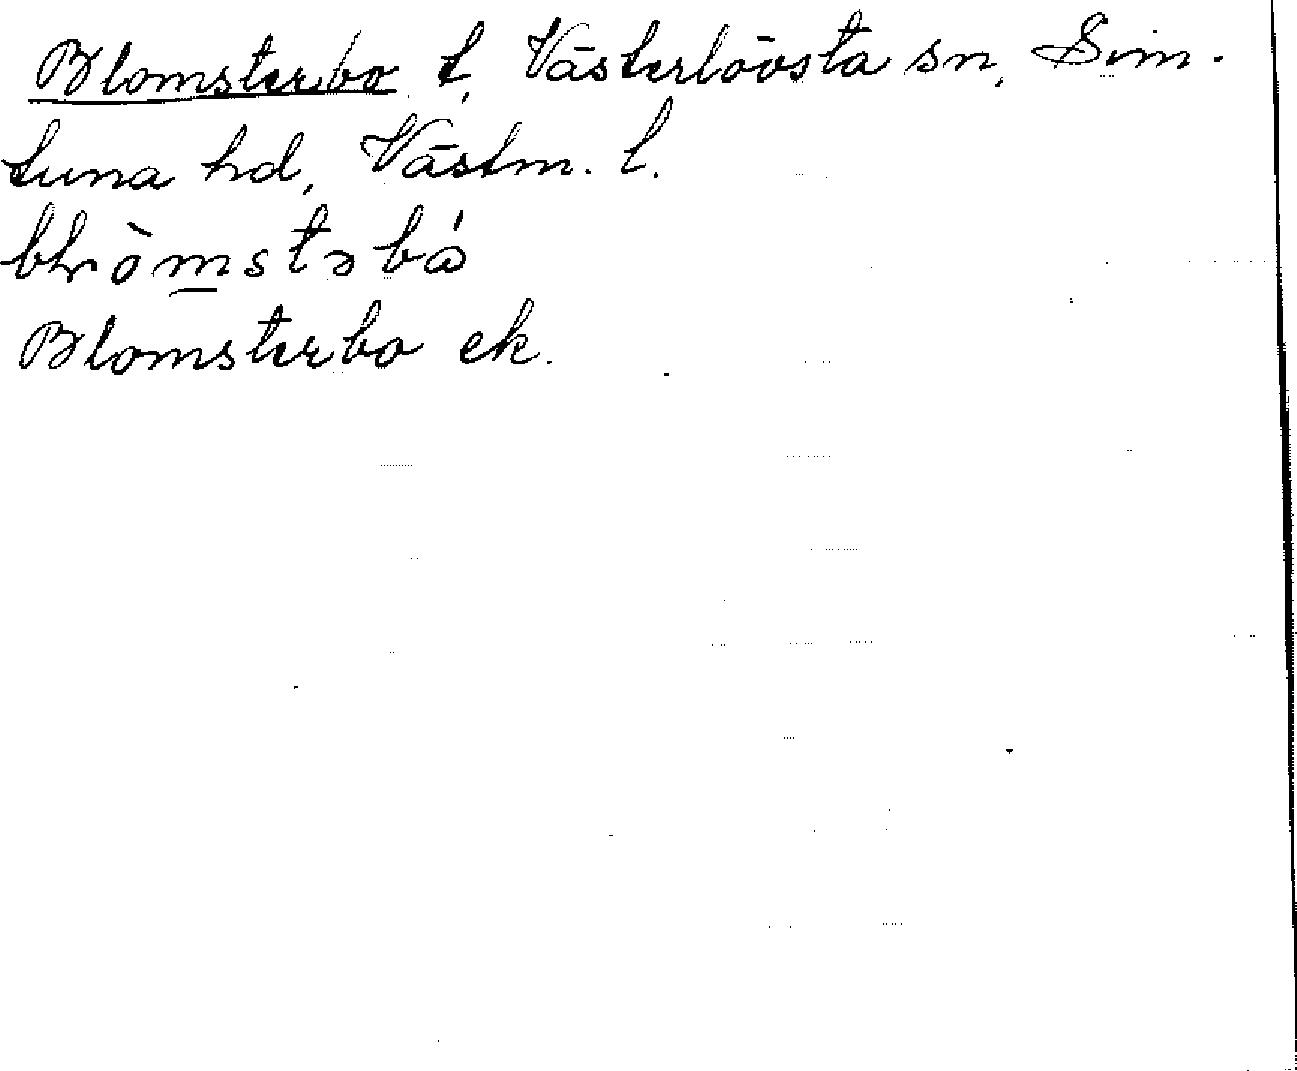 Blomsterbo t, Västerlövsta sn, Sim-
tuna hd, Västm. l.
Blomsterbo ek.